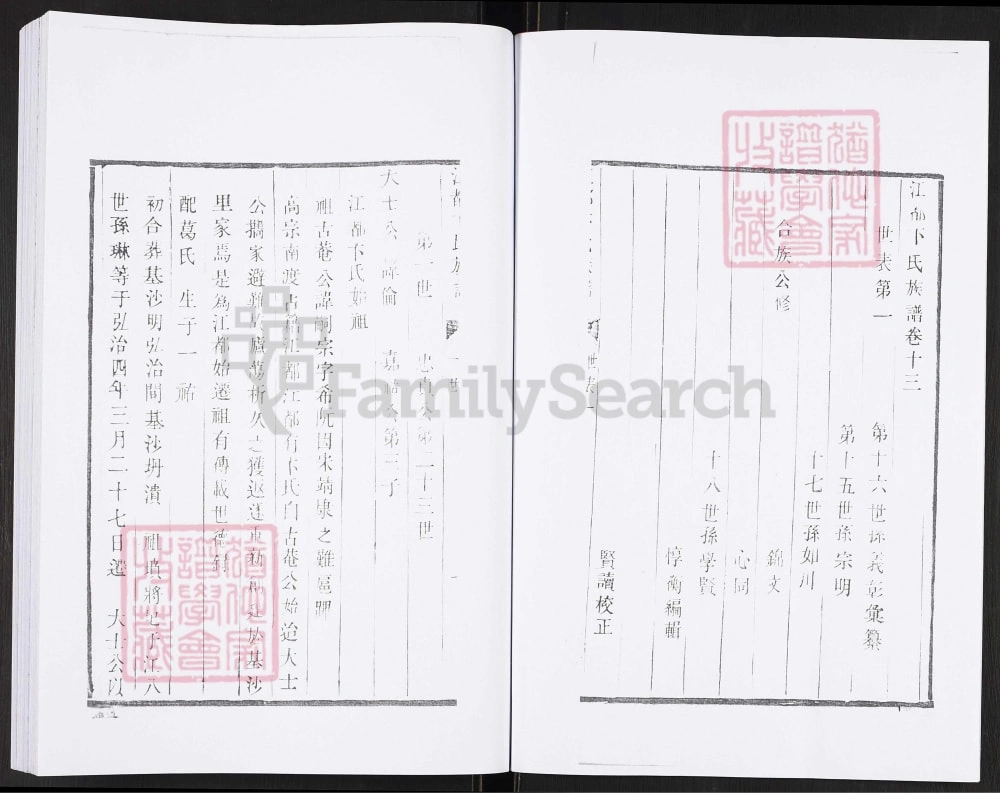 江都卞氏族譜卷十三
世表第一
第十六世孫義彰彙纂
第十五世孫宗明
合族公修
十七世孫如川
錦文
心同
十八世孫學賢
惇衡編輯
賢讀校正
第一世 忠貞公第二十三世
大士公 諱倫 嘉 公第三子
江都卞氏始祖
祖古菴公諱嗣宗字希阮因宋靖康之難扈蹕
高宗南渡占籍江都江都有卞氏自古菴公始迨大士
公攜家避難 廬 析久之獲返運 勤 於基沙
里家焉是為江都始遷祖有傳載世德錄
配葛氏 生子一 祐
初合葬基沙明弘治間基沙坍潰 祖墳將圮于江八
世孫琳等于弘治四年三月二十七日遷 大士公以
猶他家譜學會收藏
猶他家譜學會收藏
FamilySearch